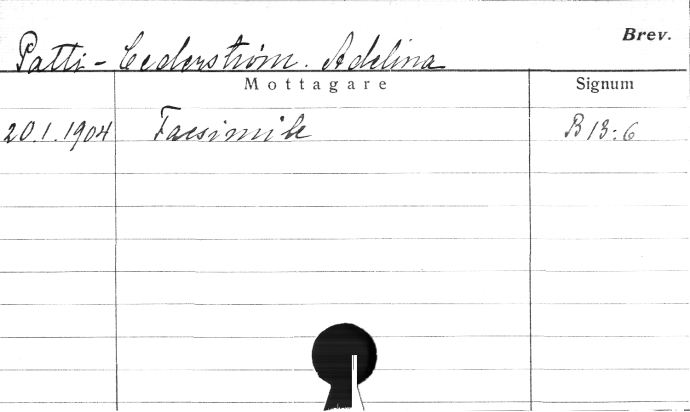 Brev.
Patti-Cederström. Adelina
Mottagare Signum
20.1.1904 Facsimile B 13:6